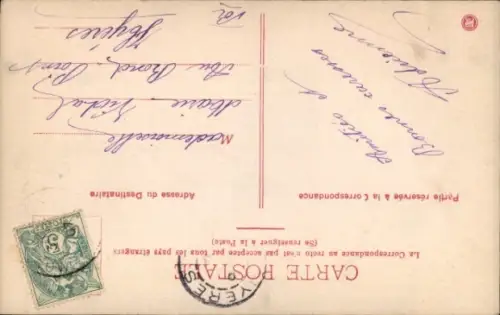 CARTE POSTALE
La Correspondance au recto n'est pas acceptée par tous les pays étrangers
(Se renseigner à la Poste)
Partie réservée à la Correspondance
Adresse du Destinataire
Amitiés et
Bonnes caresses
Mademoiselle
Marie Vidal
Au Rond Point
Hyères
Var
HYERES